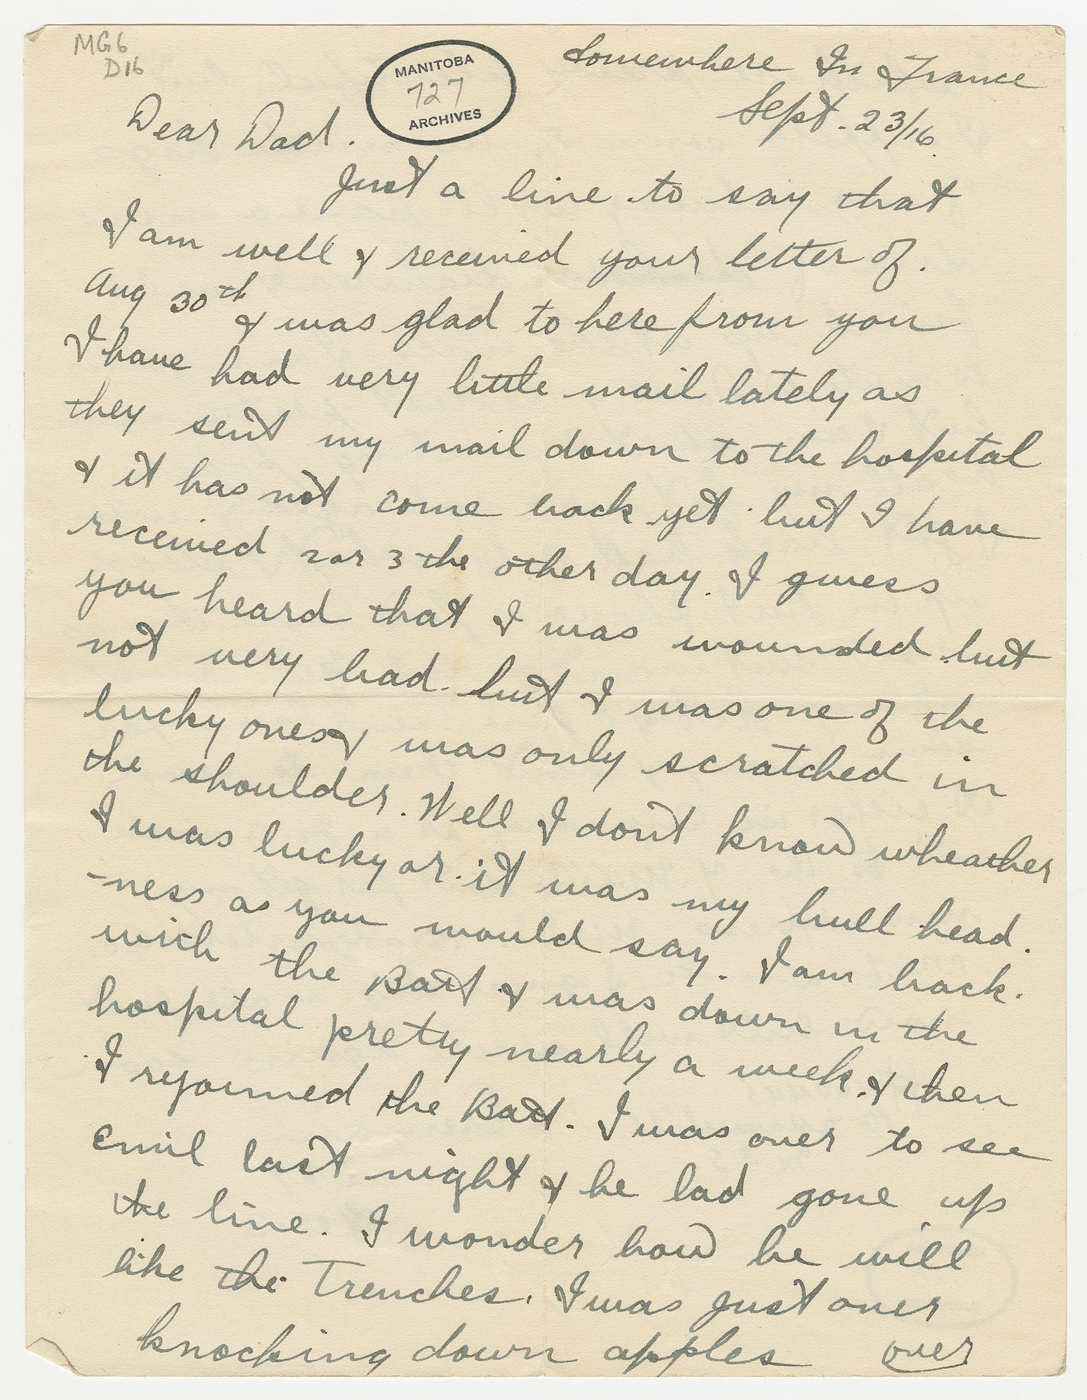 MG6
D16
MANITOBA
727
ARCHIVES
Somewhere In France
Sept. 23/16.
Dear Dad.
Just a line to say that
I am well & received your letter of.
Aug 30th & was glad to here from you
I have had very little mail lately as
they sent my mail down to the hospital
& it has not come back yet but I have
received 2 or 3 the other day. I guess
you heard that I was wounded but
not very bad. but I was one of the
lucky ones & was only scratched in
the shoulder. Well I don't know wheather
I was lucky or it was my bull head.
-ness as you would say. I am back.
with the Batt & was down in the
hospital pretty nearly a week. & then
I rejoined the Batt. I was over to see
Emil last night & he had gone up
the line. I wonder how he will
like the Trenches. I was just over
knocking down apples over